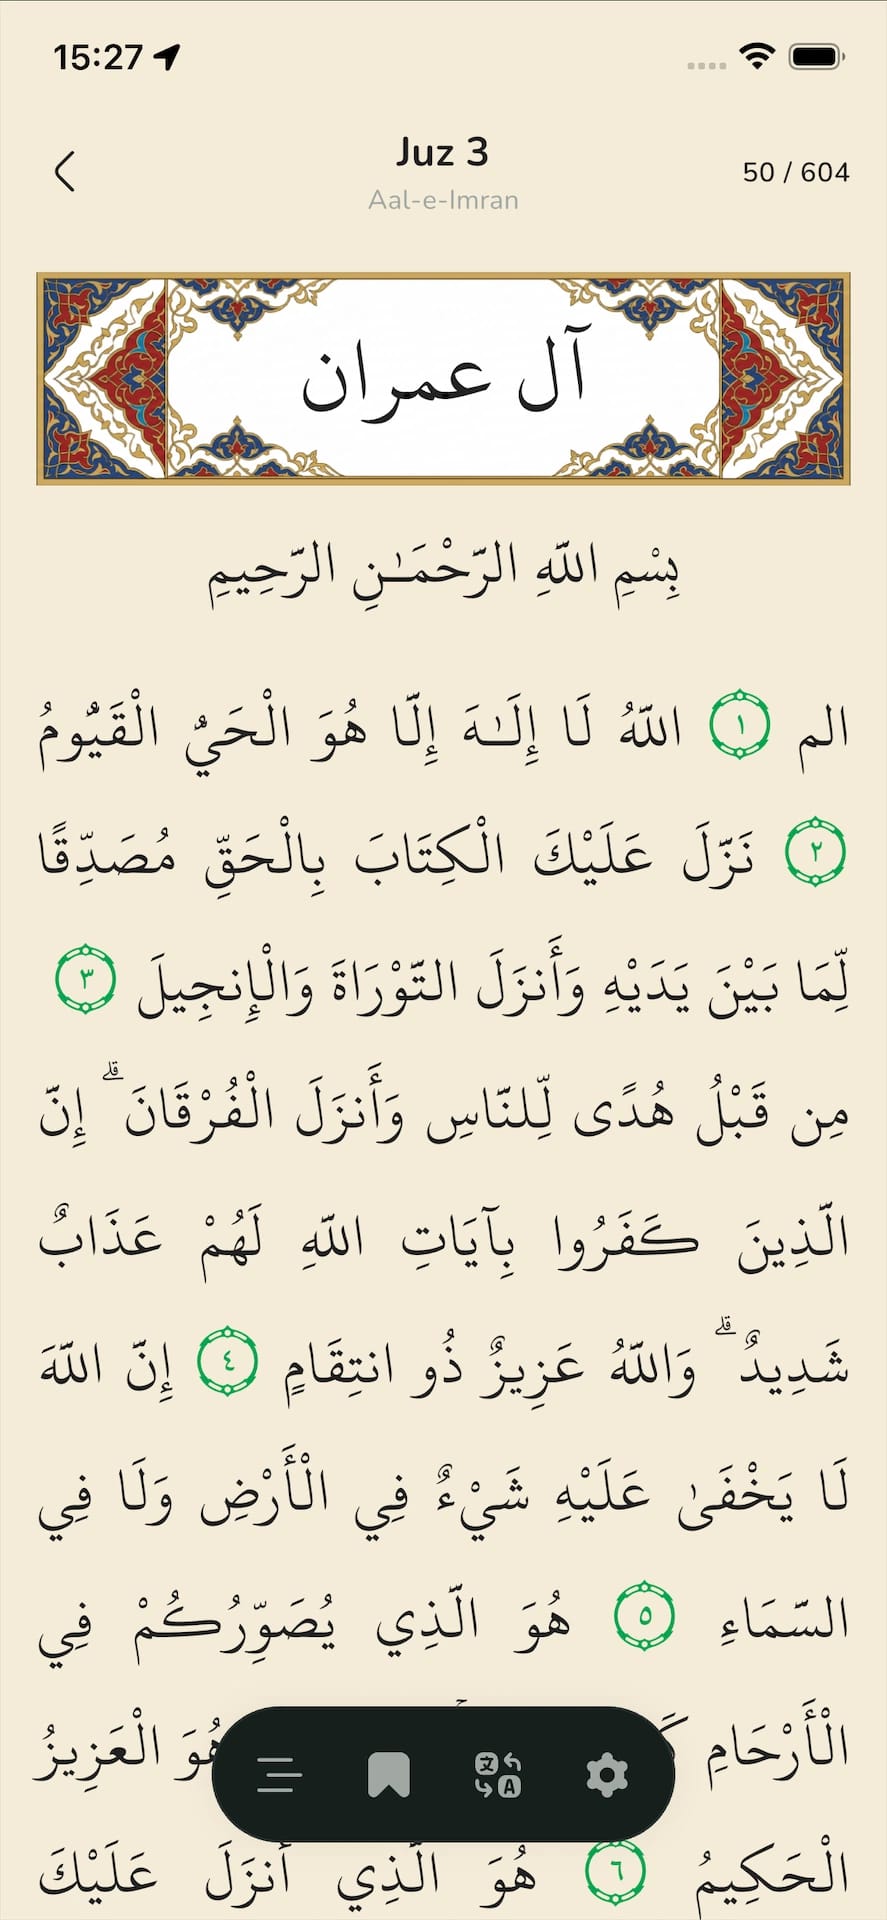 15:27
Juz 3
50 / 604
Aal-e-Imran
آل عمران
بِسْمِ اللَّهِ الرَّحْمَـٰنِ الرَّحِيمِ
الم ١ اللَّهُ لَا إِلَـٰهَ إِلَّا هُوَ الْحَيُّ الْقَيُّومُ
٢ نَزَّلَ عَلَيْكَ الْكِتَابَ بِالْحَقِّ مُصَدِّقًا
لِّمَا بَيْنَ يَدَيْهِ وَأَنزَلَ التَّوْرَاةَ وَالْإِنجِيلَ ٣
مِن قَبْلُ هُدًى لِّلنَّاسِ وَأَنزَلَ الْفُرْقَانَ ۗ إِنَّ
الَّذِينَ كَفَرُوا بِآيَاتِ اللَّهِ لَهُمْ عَذَابٌ
شَدِيدٌ ۗ وَاللَّهُ عَزِيزٌ ذُو انتِقَامٍ ٤ إِنَّ اللَّهَ
لَا يَخْفَىٰ عَلَيْهِ شَيْءٌ فِي الْأَرْضِ وَلَا فِي
السَّمَاءِ ٥ هُوَ الَّذِي يُصَوِّرُكُمْ فِي
الْأَرْحَامِ هُوَ الْعَزِيزُ
الْحَكِيمُ ٦ هُوَ الَّذِي أَنزَلَ عَلَيْكَ